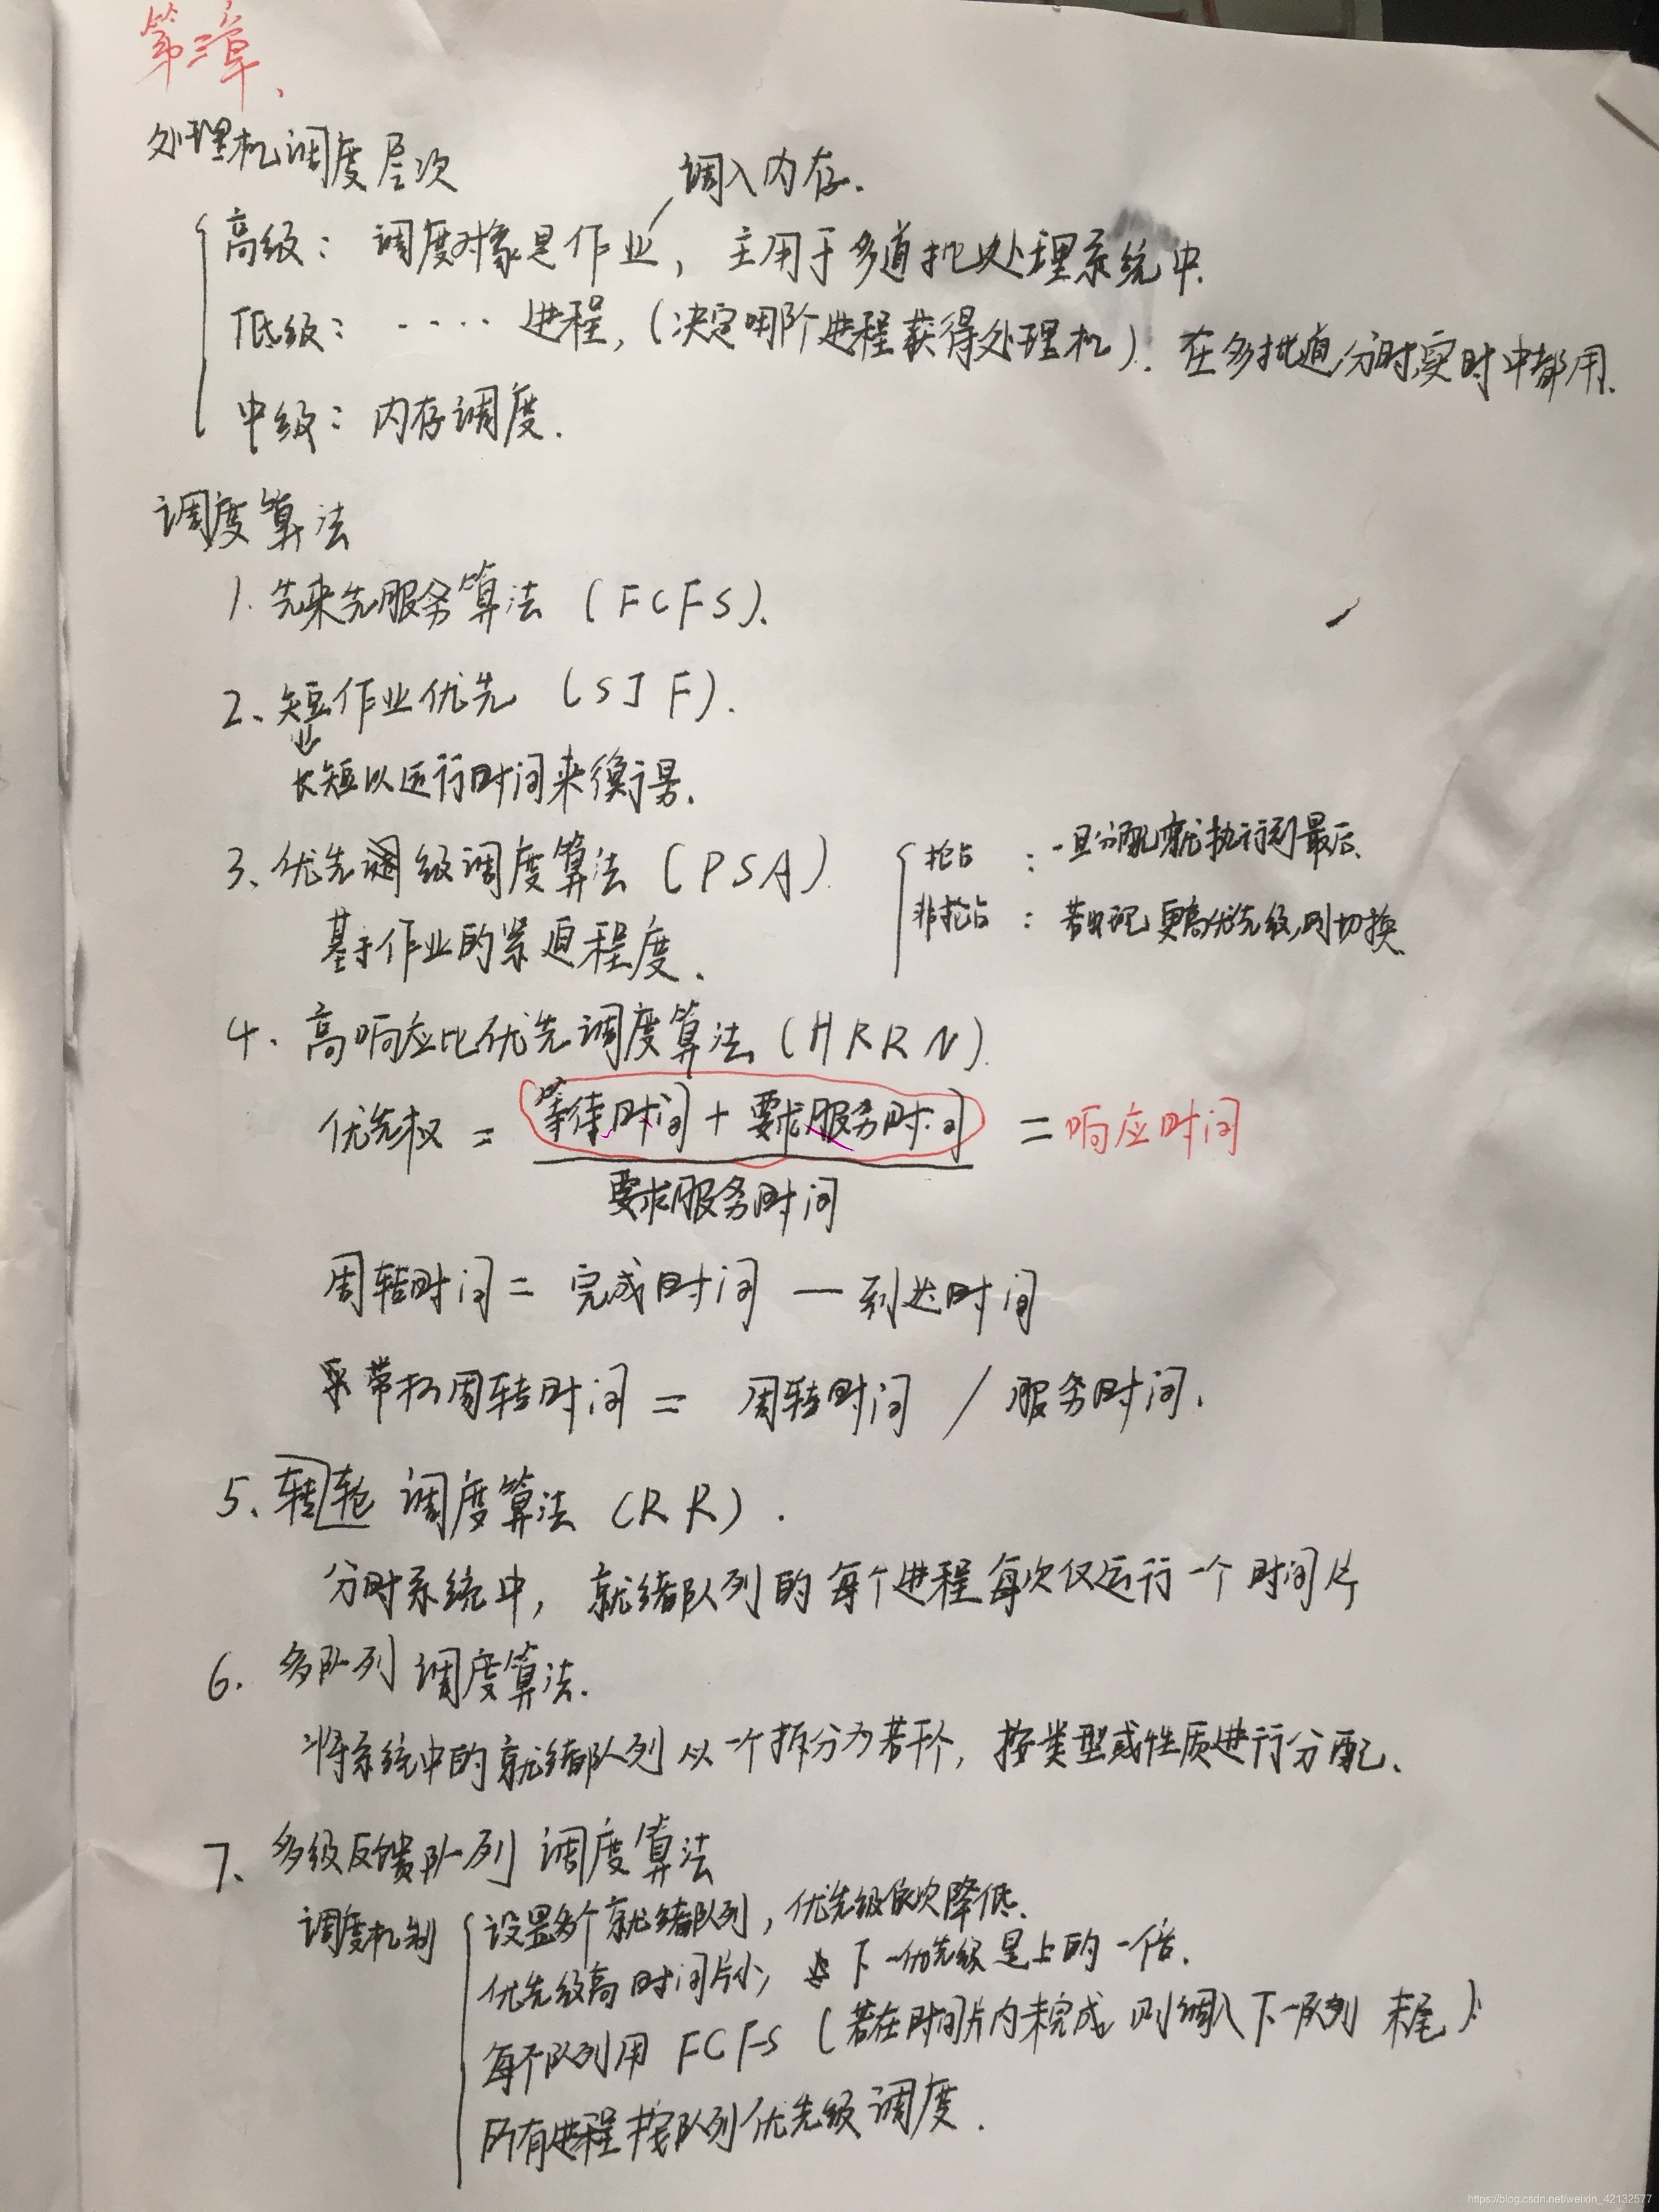 第三章、
处理机调度层次
调入内存.
高级：调度对象是作业，主用于多道批处理系统中.
低级：····进程，(决定哪个进程获得处理机). 在多批道分时,实时中都用.
中级：内存调度.
调度算法
1. 先来先服务算法 (FCFS).
2、短作业优先 (SJF).
长短以运行时间来衡量.
3、优先级调度算法 (PSA).
抢占：一旦分配就执行到最后.
基于作业的紧迫程度、
非抢占：若出现更高优先级,则切换
4、高响应比优先调度算法 (HRRN).
优先权 = 等待时间 + 要求服务时间 = 响应时间
要求服务时间
周转时间 = 完成时间 — 到达时间
带权周转时间 = 周转时间 / 服务时间.
5、转轮 调度算法 (RR).
分时系统中，就绪队列的每个进程每次仅运行一个时间片
6、多队列 调度算法.
将系统中的就绪队列从一个拆分为若干个，按类型或性质进行分配、
7、多级反馈队列 调度算法
调度机制
设置多个就绪队列，优先级依次降低.
优先级高时间片小，下一优先级是上的一倍.
每个队列用 FCFS (若在时间片内未完成 则调入下一队列 末尾)
所有进程按队列优先级调度.
https://blog.csdn.net/weixin_42132577